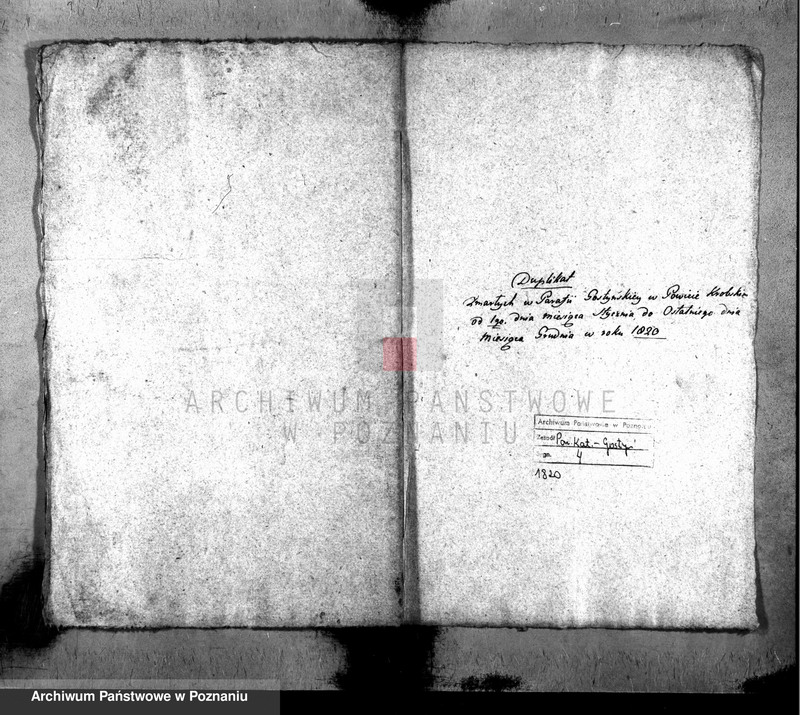 Duplikat
Zmarłych w Parafii Gostyńskiey w Powiecie Krobskim
od 1go. dnia miesiąca Stycznia do Ostatniego dnia
miesiąca Grudnia w roku 1820
ARCHIWUM PAŃSTWOWE
W POZNANIU
Archiwum Państwowe w Poznaniu
Zespół Par. Kat. - Gostyń
Sygn. 4
1820
Archiwum Państwowe w Poznaniu